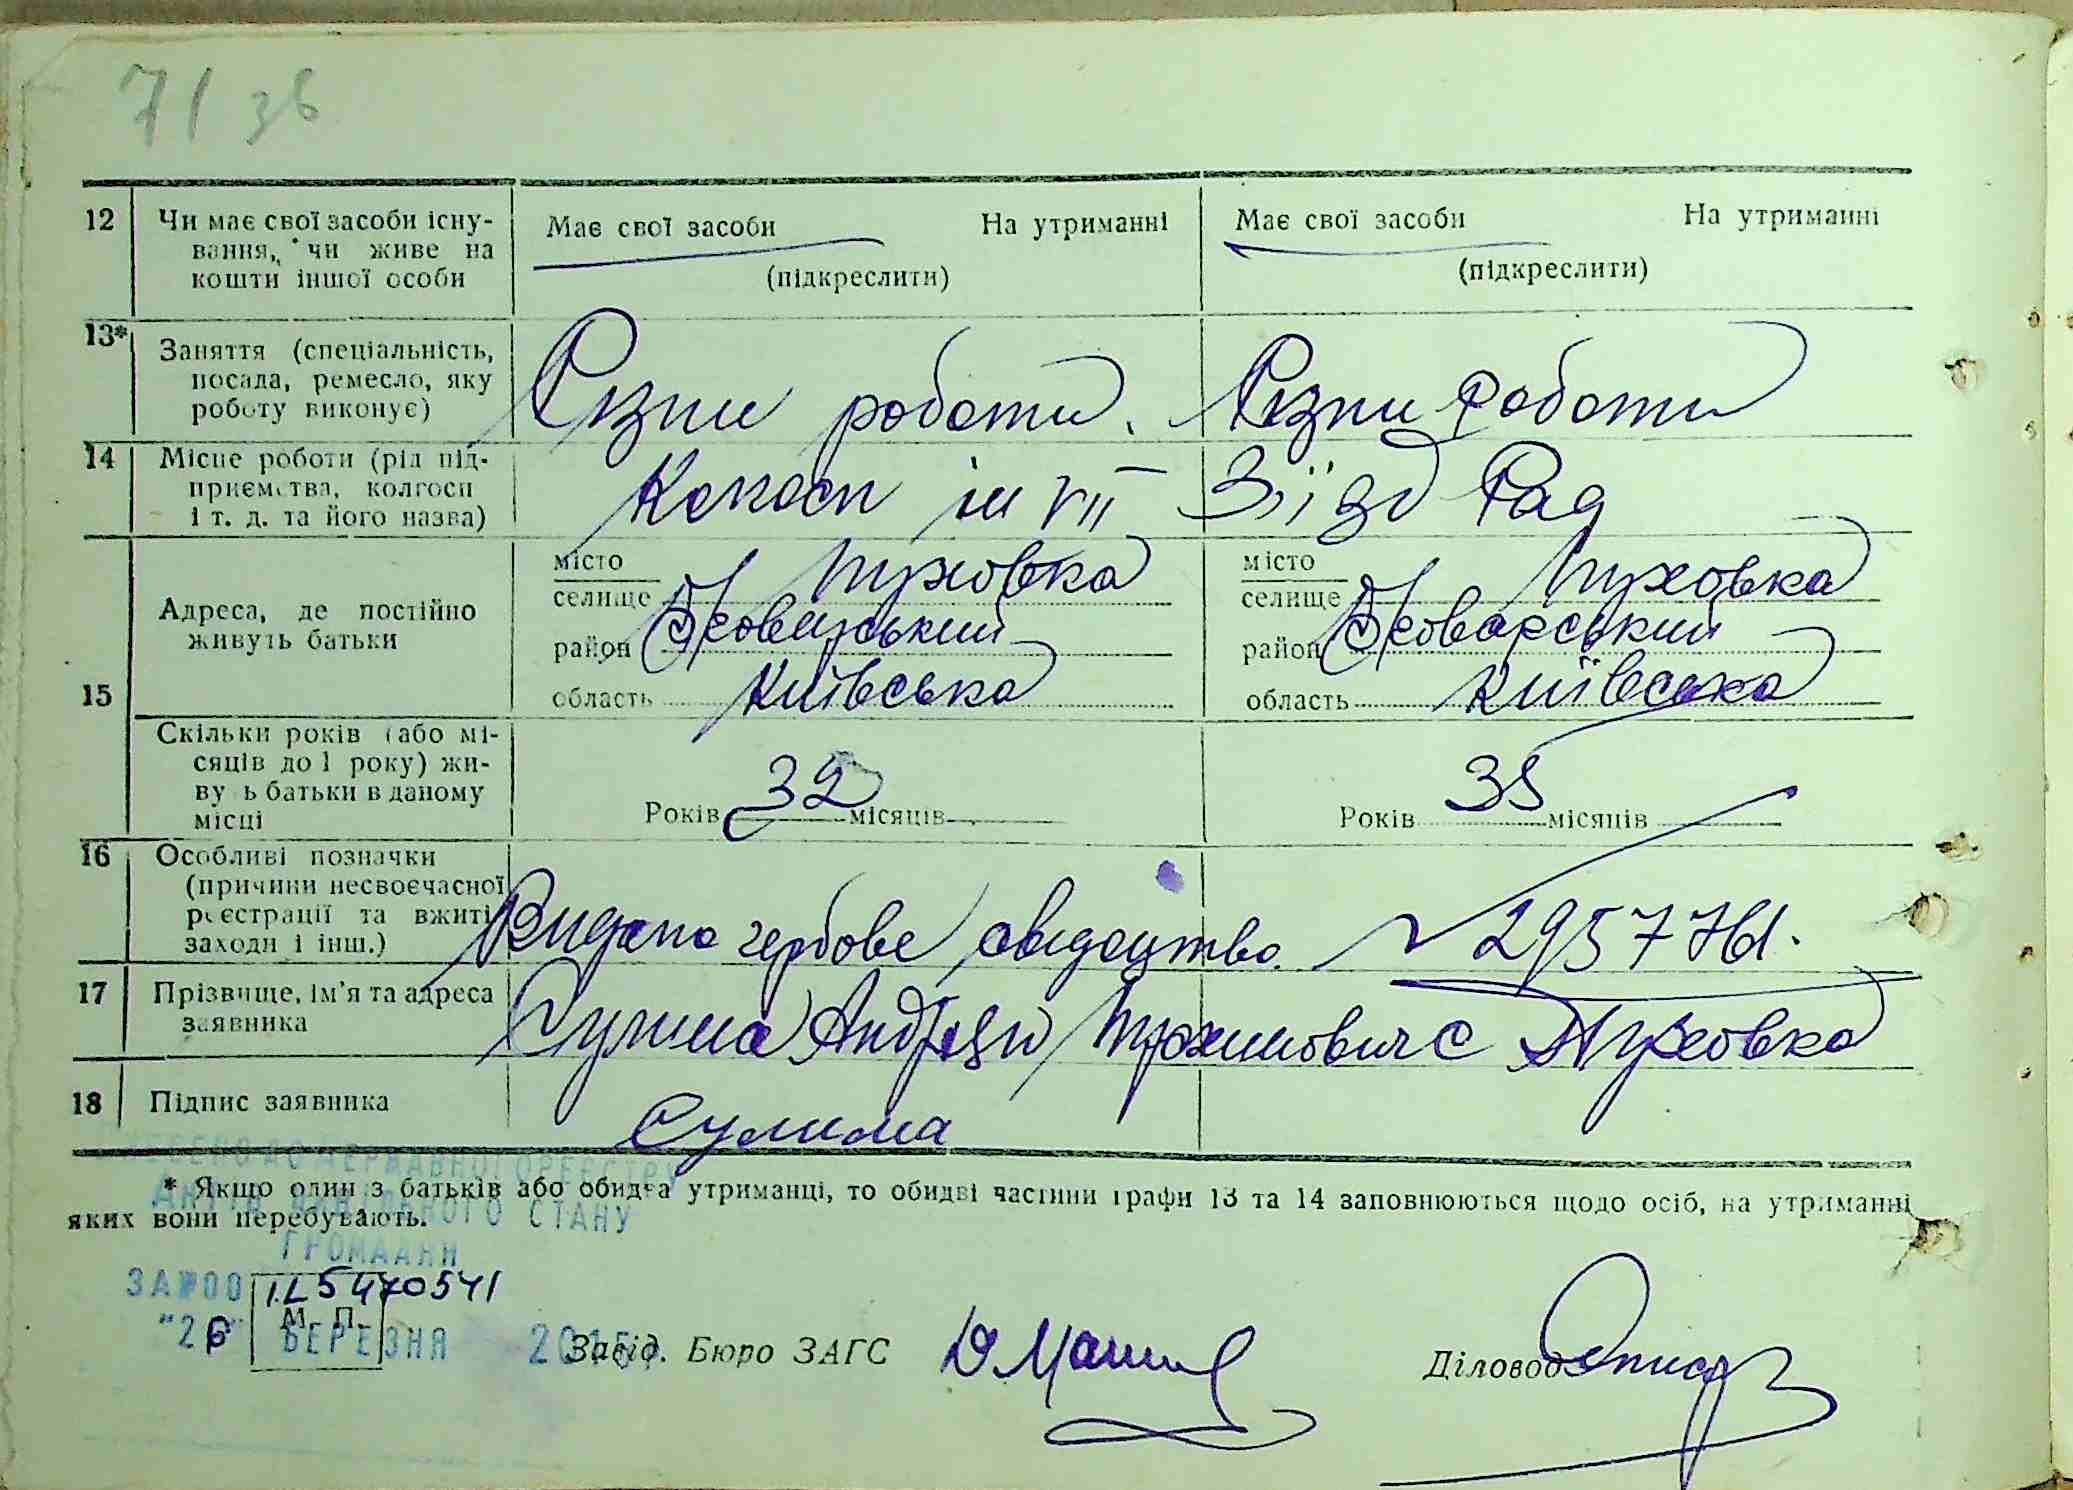 71 зв
12 Чи має свої засоби існу- Має свої засоби На утриманні Має свої засоби На утриманні
вання, чи живе на
кошти іншої особи (підкреслити) (підкреслити)
13* Заняття (спеціальність,
посада, ремесло, яку Різни роботи. Різни роботи
роботу виконує)
14 Місце роботи (рід під-
приємства, колгосп Колгосп ім VII Зїїзд Рад
і т. д. та його назва)
15 Адреса, де постійно
живуть батьки
місто місто
селище Пуховка селище Пуховка
район Броварський район Броварський
область Київська область Київська
Скільки років (або мі-
сяців до 1 року) жи-
вуть батьки в даному
місці Років 32 місяців Років 35 місяців
16 Особливі позначки
(причини несвоєчасної
реєстрації та вжиті Видано гербове свідоцтво №
заходи і інш.)
17 Прізвище, ім'я та адреса
заявника Сулима Андрій с Пуховка
18 Підпис заявника Сулима
ВНЕСЕНО ДО ДЕРЖАВНОГО РЕЄСТРУ
* Якщо один з батьків або обидва утриманці, то обидві частини графи 13 та 14 заповнюються щодо осіб, на утриманні
АКТІВ ЦИВІЛЬНОГО СТАНУ
яких вони перебувають.
ГРОМАДЯН
ЗА №00 1L5470541
"26" М. П. БЕРЕЗНЯ
Завід. Бюро ЗАГС Діловод